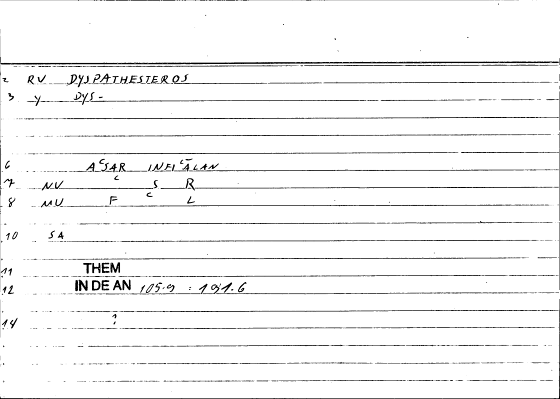 2 RV DYSPATHESTEROS
3 y DYS-
6 ACSAR INFICALAN
7 NV C S R
8 MU F C L
10 SA
11 THEM
12 IN DE AN 105.9 : 191.6
14 ?